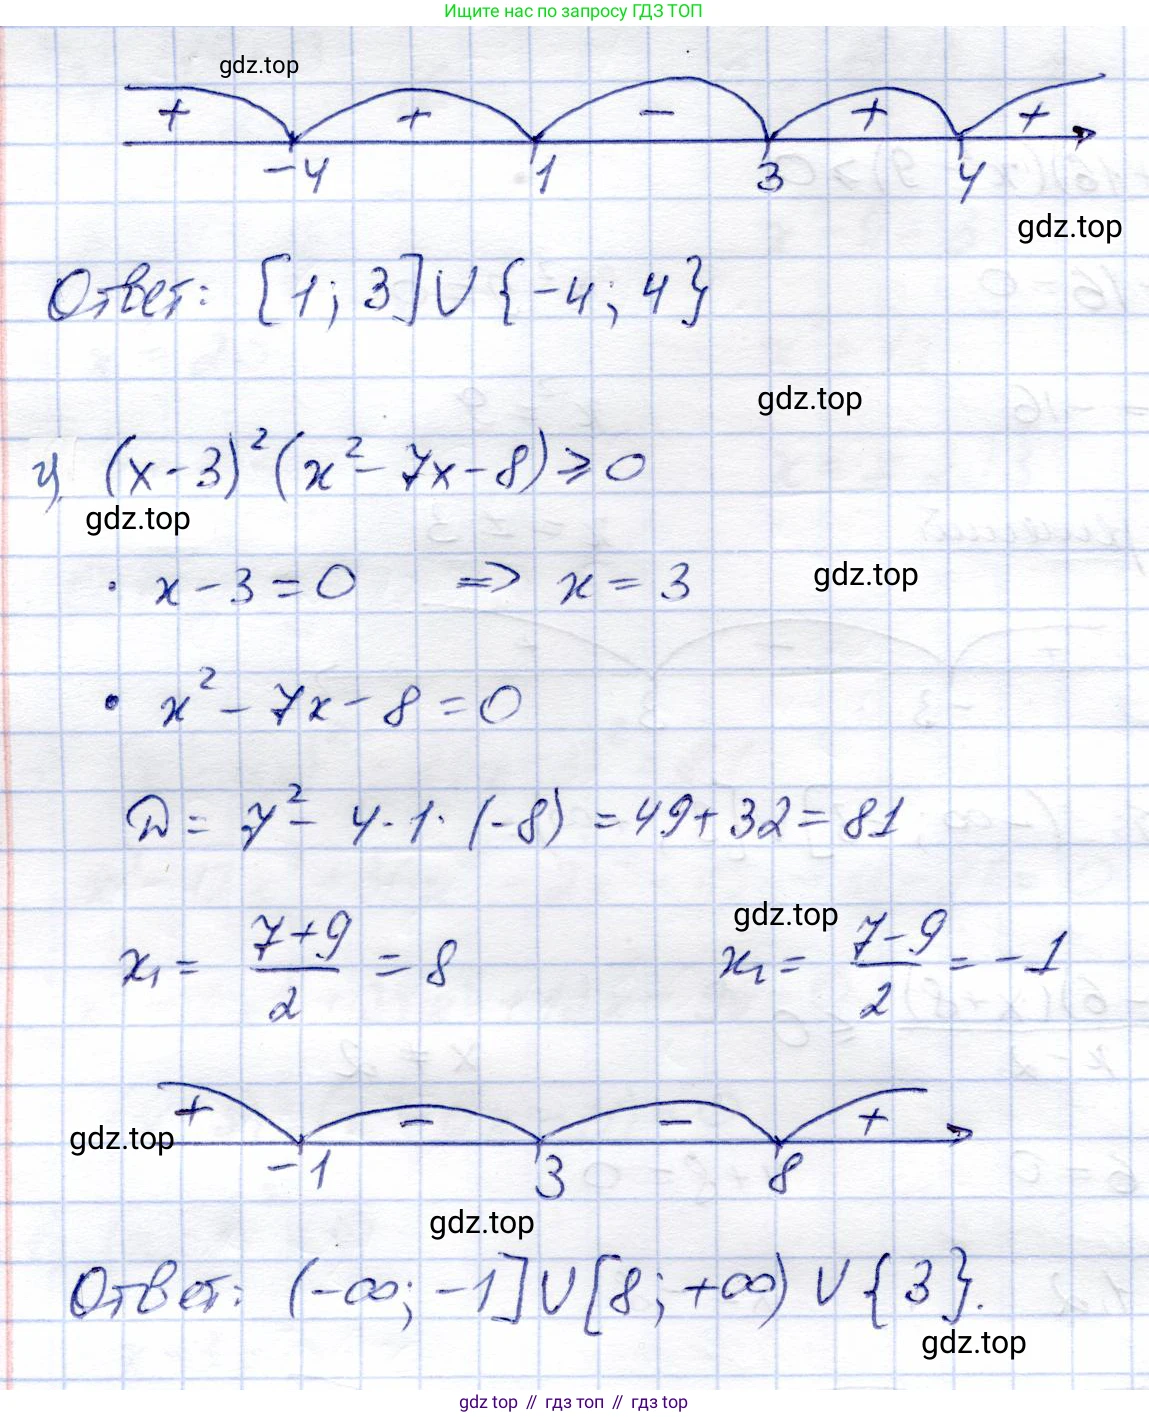 Ищите нас по запросу ГДЗ ТОП
gdz.top
+ + − + +
−4 1 3 4
gdz.top
Ответ: [1; 3] ∪ {−4; 4}
gdz.top
ч) (x − 3)² (x² − 7x − 8) ⩾ 0
gdz.top
• x − 3 = 0 => x = 3
gdz.top
• x² − 7x − 8 = 0
D = 7² − 4 · 1 · (−8) = 49 + 32 = 81
gdz.top
x₁ = (7+9)/2 = 8 x₂ = (7−9)/2 = −1
+ − − +
gdz.top
−1 3 8
gdz.top
Ответ: (−∞; −1] ∪ [8; +∞) ∪ {3}.
gdz.top
gdz top // гдз топ // гдз top